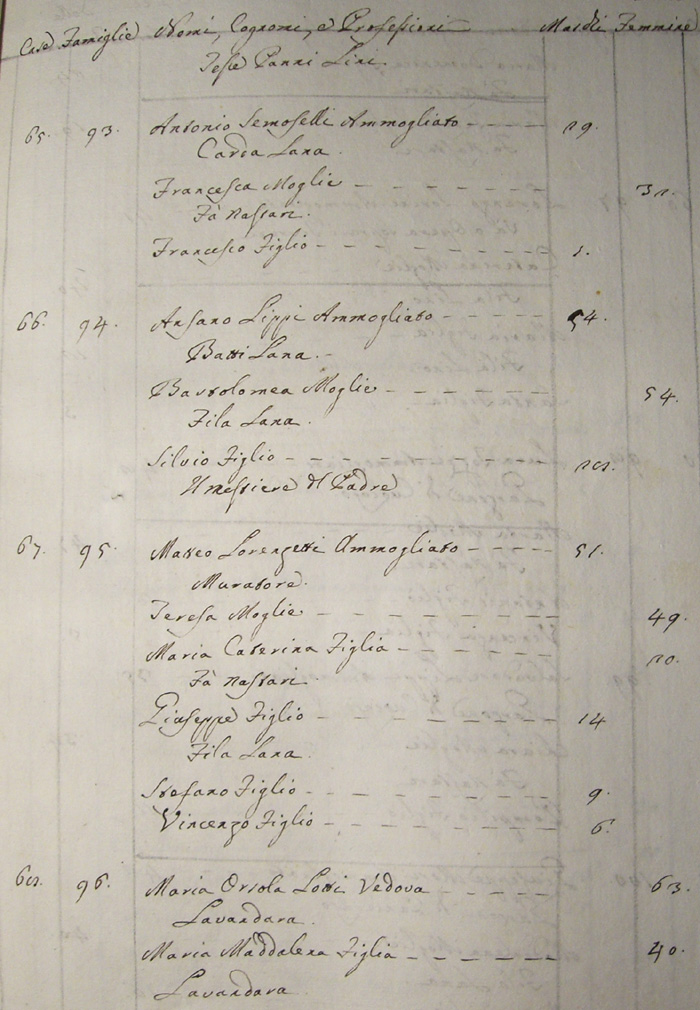 Case Famiglie Nomi, Cognomi, e Professioni Maschi Femmine
Tesse Panni Lini
65. 93. Antonio Semoselli Ammogliato - - - - 29.
Carda Lana.
Francesca Moglie - - - - - - 32.
Fà Nastari.
Francesco Figlio - - - - - - - 1.
66. 94. Ansano Lippi Ammogliato - - - - - 54.
Batti Lana. -
Bartolomea Moglie - - - - - - 54.
Fila Lana.
Silvio Figlio - - - - - - - - 28.
Il mestiere del Padre
67. 95. Matteo Lorenzetti Ammogliato - - - - 51.
Muratore.
Teresa Moglie - - - - - - - 49.
Maria Caterina Figlia - - - - - 20.
Fà Nastari.
Giuseppe Figlio - - - - - - - 14
Fila Lana.
Stefano Figlio - - - - - - - 9.
Vincenzo Figlio - - - - - - - 6.
68. 96. Maria Orsola Lotti Vedova - - - - 63.
Lavandara.
Maria Maddalena Figlia - - - - - 40.
Lavandara